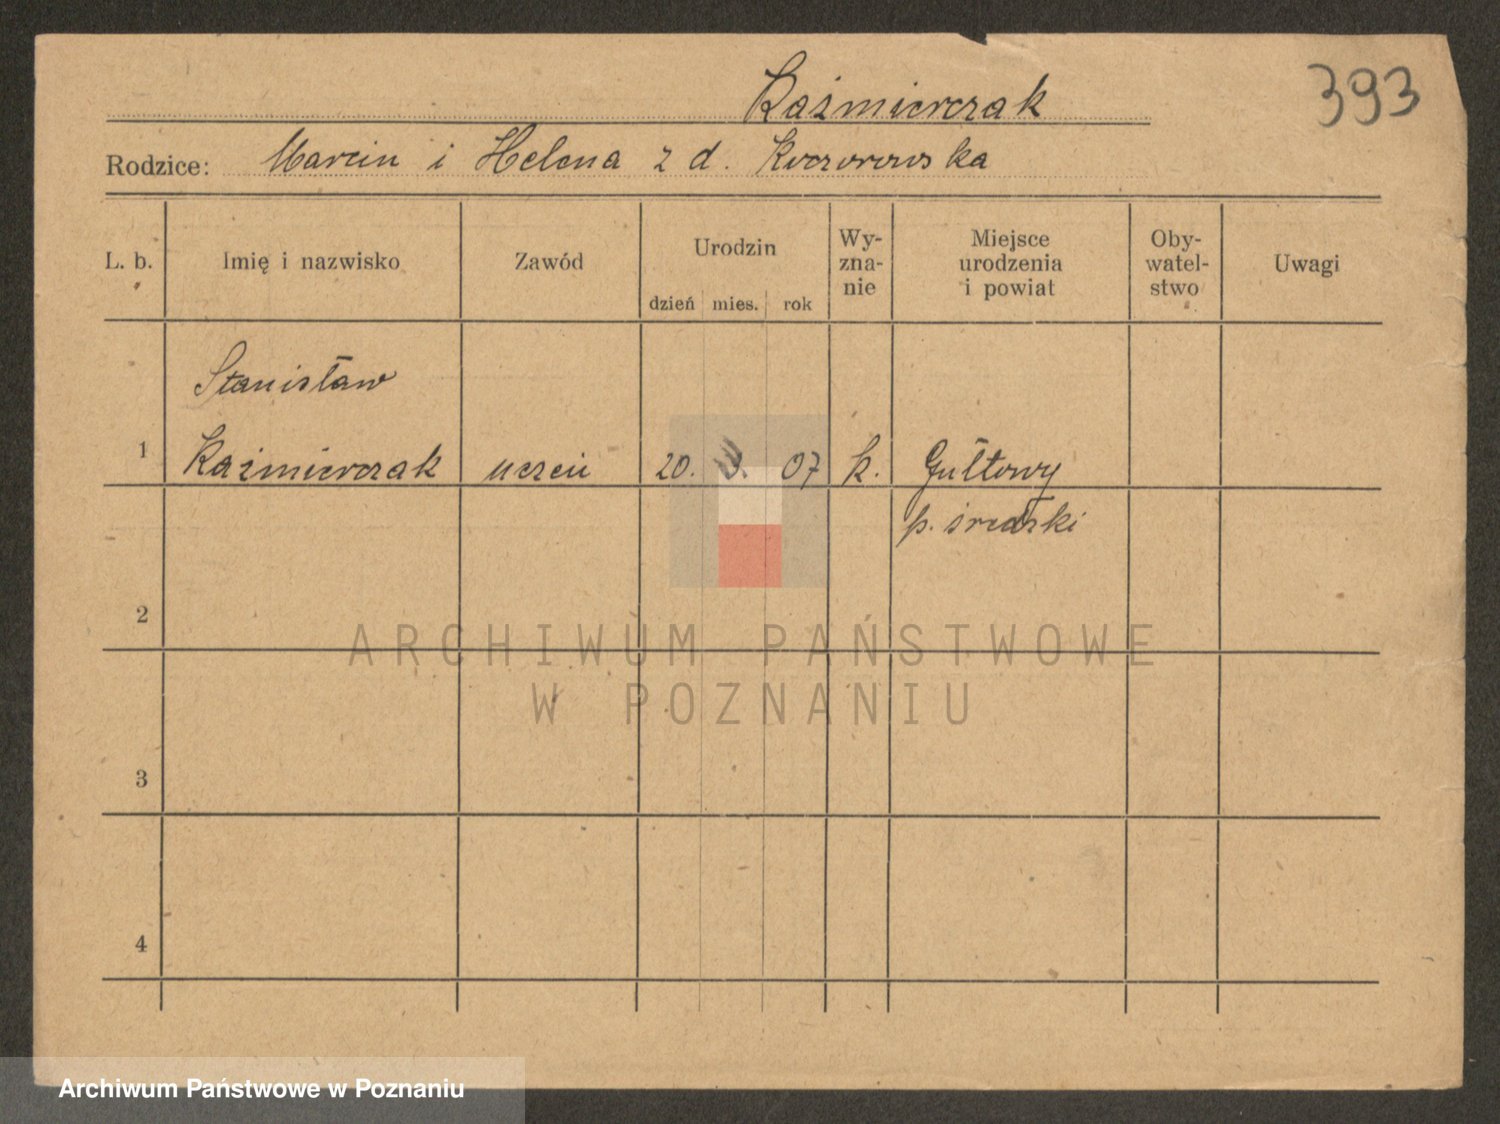 Kaźmierczak
393
Rodzice: Marcin i Helena z d. Koczorowska
L. b. Imię i nazwisko Zawód Urodzin dzień mies. rok Wy- zna- nie Miejsce urodzenia i powiat Oby- watel- stwo Uwagi
Stanisław
1 Kaźmierczak uczeń 20. 07 k. Gułtowy
p. średzki
2
3
4
ARCHIWUM PAŃSTWOWE
W POZNANIU
Archiwum Państwowe w Poznaniu